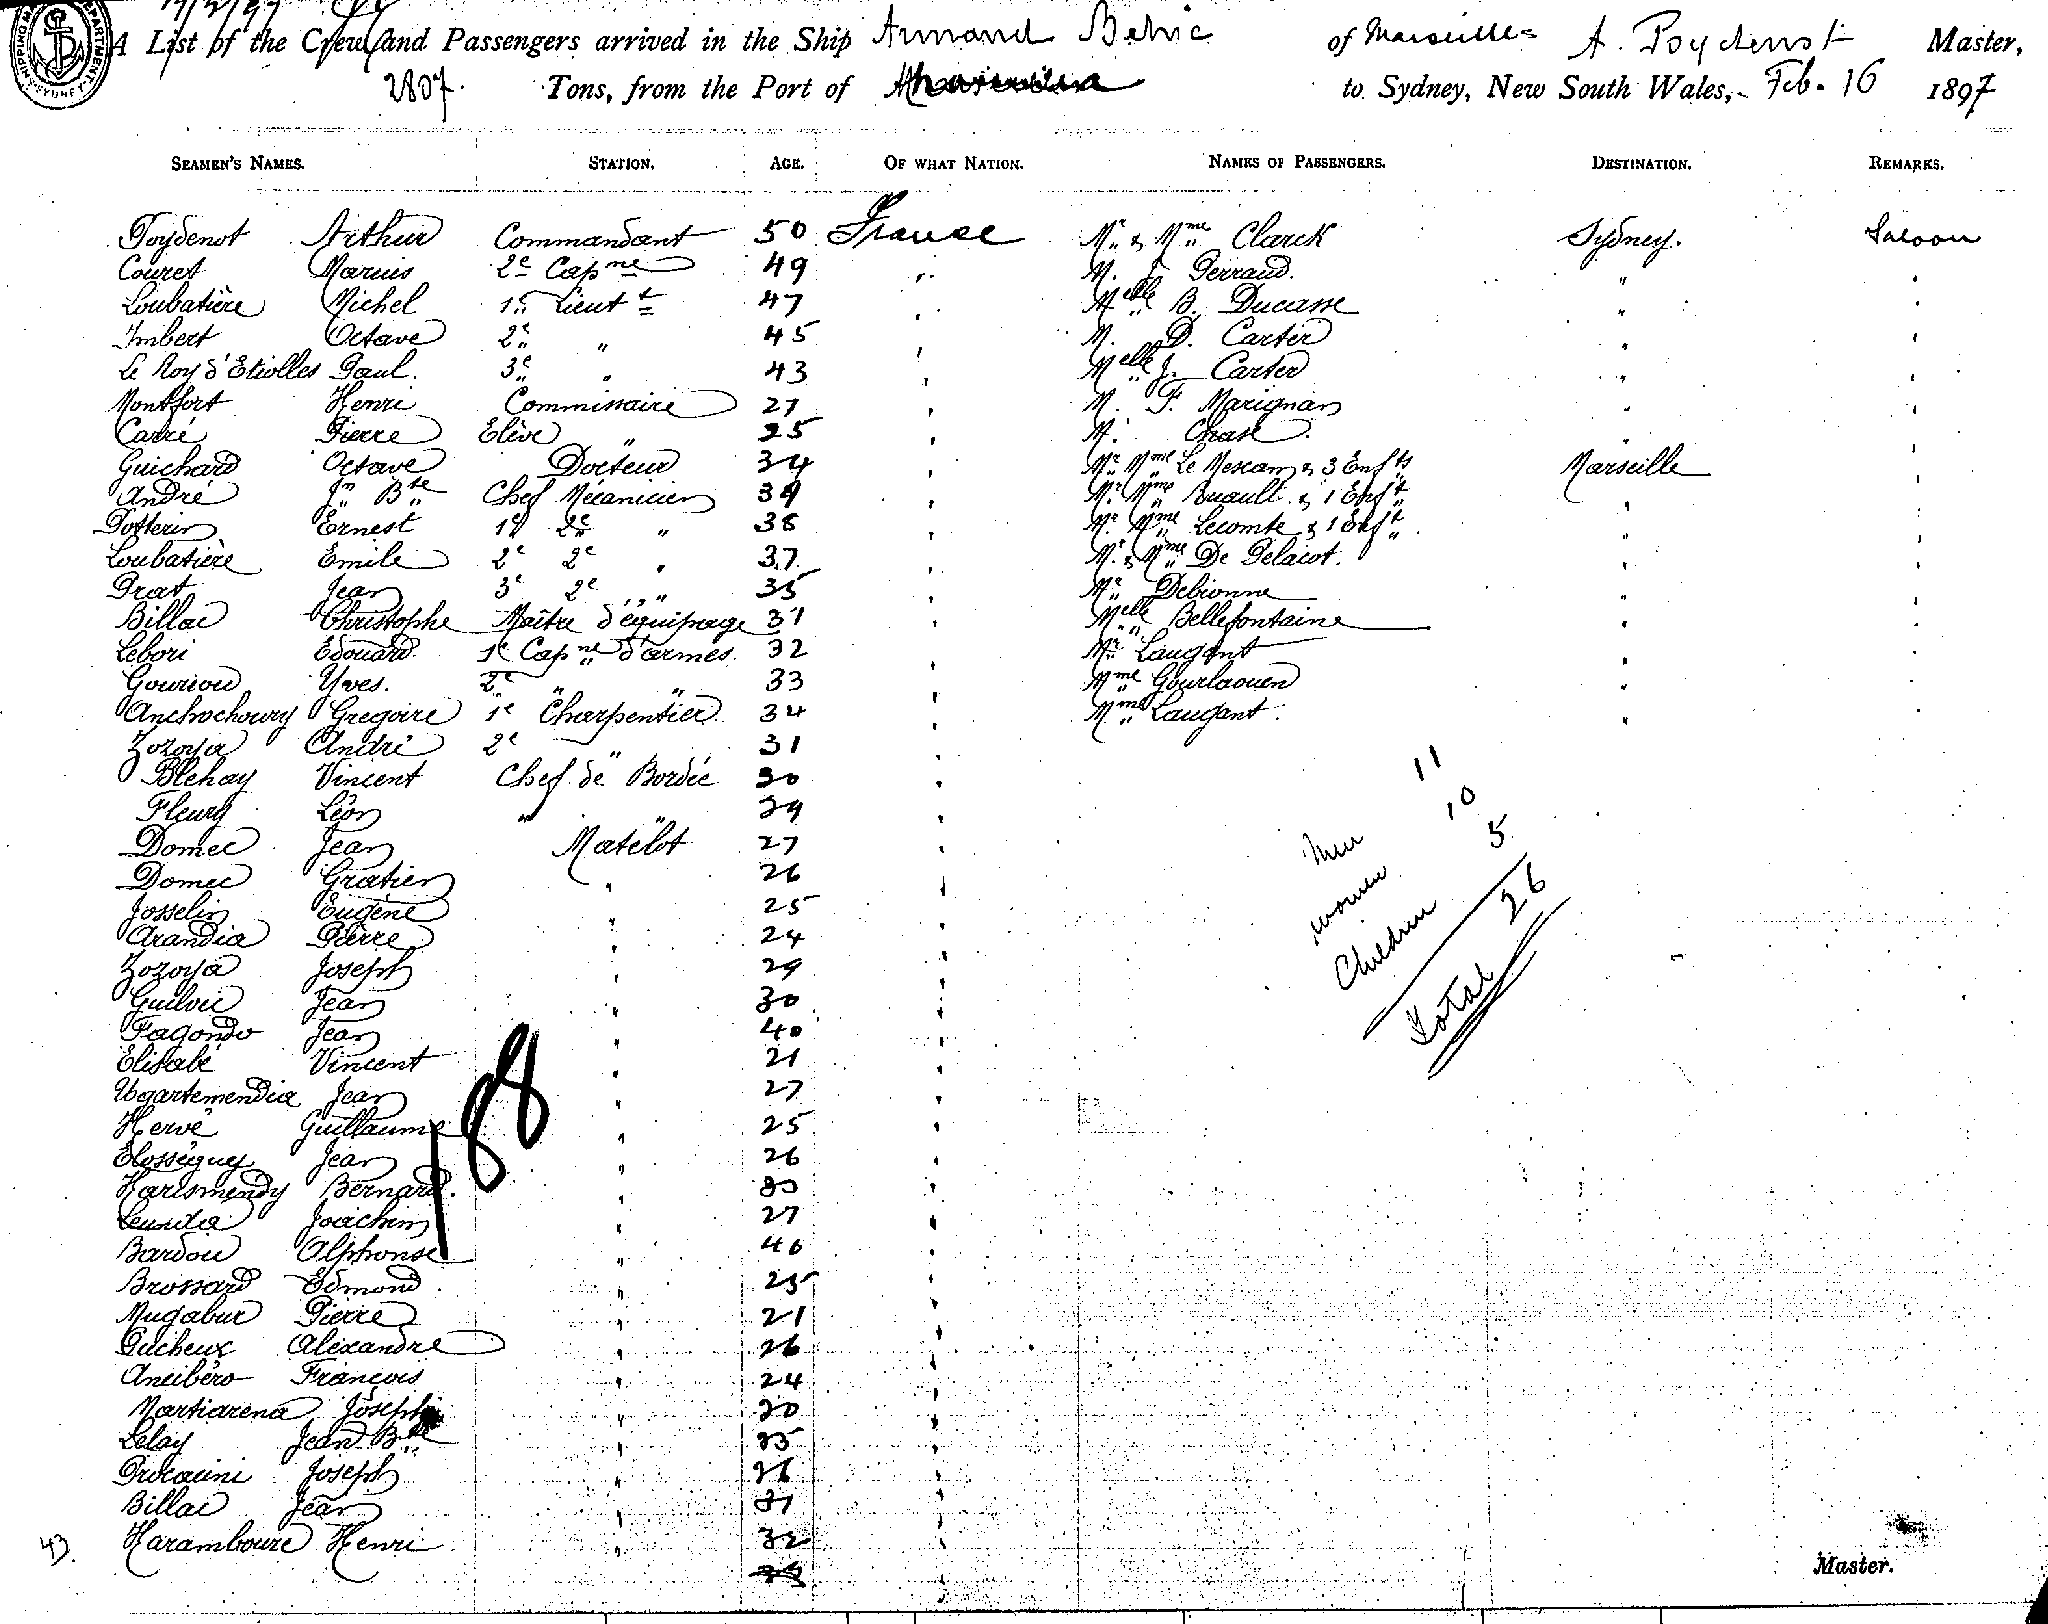 17/2/97
A List of the Crew and Passengers arrived in the Ship Armand Behic of Marseilles A. Poydenot Master,
2807. Tons, from the Port of to Sydney, New South Wales, Feb. 16 1897
SEAMEN'S NAMES. STATION. AGE. OF WHAT NATION. NAMES OF PASSENGERS. DESTINATION. REMARKS.
Poydenot Arthur Commandant 50 France Mr & Mme Clarck Sydney. Saloon
Couret Marius 2e Capne 49 " M. Perraud. " "
Loubatière Michel 1er Lieutt 47 " Melle B. Ducasse " "
Imbert Octave 2e " 45 " M. D. Carter " "
Le Roy d'Etiolles Paul. 3e " 43 " Melle J. Carter " "
Montfort Henri Commissaire 27 " M. F. Marignan " "
Carré Pierre Elève " 25 " M. Chase. " "
Guichard Octave Docteur 34 " Mr Mme Le Mescam & 3 Enfts Marseille "
André Jn Bte Chef Mécanicien 39 " Mr Mme Ruault & 1 Enft " "
Potterin Ernest 1er 2e " 38 " Mr Mme Lecomte & 1 Enft. " "
Loubatière Emile 2e 2e " 37 " Mr & Mme De Pelacot. " "
Prat Jean 3e 2e " 35 " Mr Debionne " "
Billac Christophe Maître d'équipage 31 " Melle Bellefontaine " "
Lebori Edouard 1e Capne d'armes. 32 " Mr Laugant " "
Gouriou Yves. 2e " " 33 " Mme Gourlaouen " "
Anchochoury Gregoire 1e Charpentier 34 " Mme Laugant. " "
Zozoya André 2e " 31 "
Blehay Vincent Chef de Bordée 30 "
Fleury Léon " 29 "
Domec Jean Matelot 27 "
Domec Gratien " 26 "
Josselin Eugène " 25 "
Arandia Pierre " 24 "
Zozoya Joseph " 29 "
Guilvic Jean " 30 "
Fagondo Jean " 40 "
Elisabé Vincent " 21 "
Ugartemendia Jean " 27 "
Hervé Guillaume " 25 "
Elosseguey Jean " 26 "
Harismendy Bernard. " 30 "
Leunda Joachin " 27 "
Bardou Alphonse " 46 "
Brossard Edmond " 25 "
Mugabur Pierre " 21 "
Gucheux Alexandre " 26 "
Ancibéro François " 24 "
Martiarena Joseph " 30 "
Lelay Jean Bte " 35 "
Joseph " 36 "
Billac Jean " 31 "
Haramboure Henri " 32 "
43.
188
Men 11
women 10
Children 5
Total 26
Master.